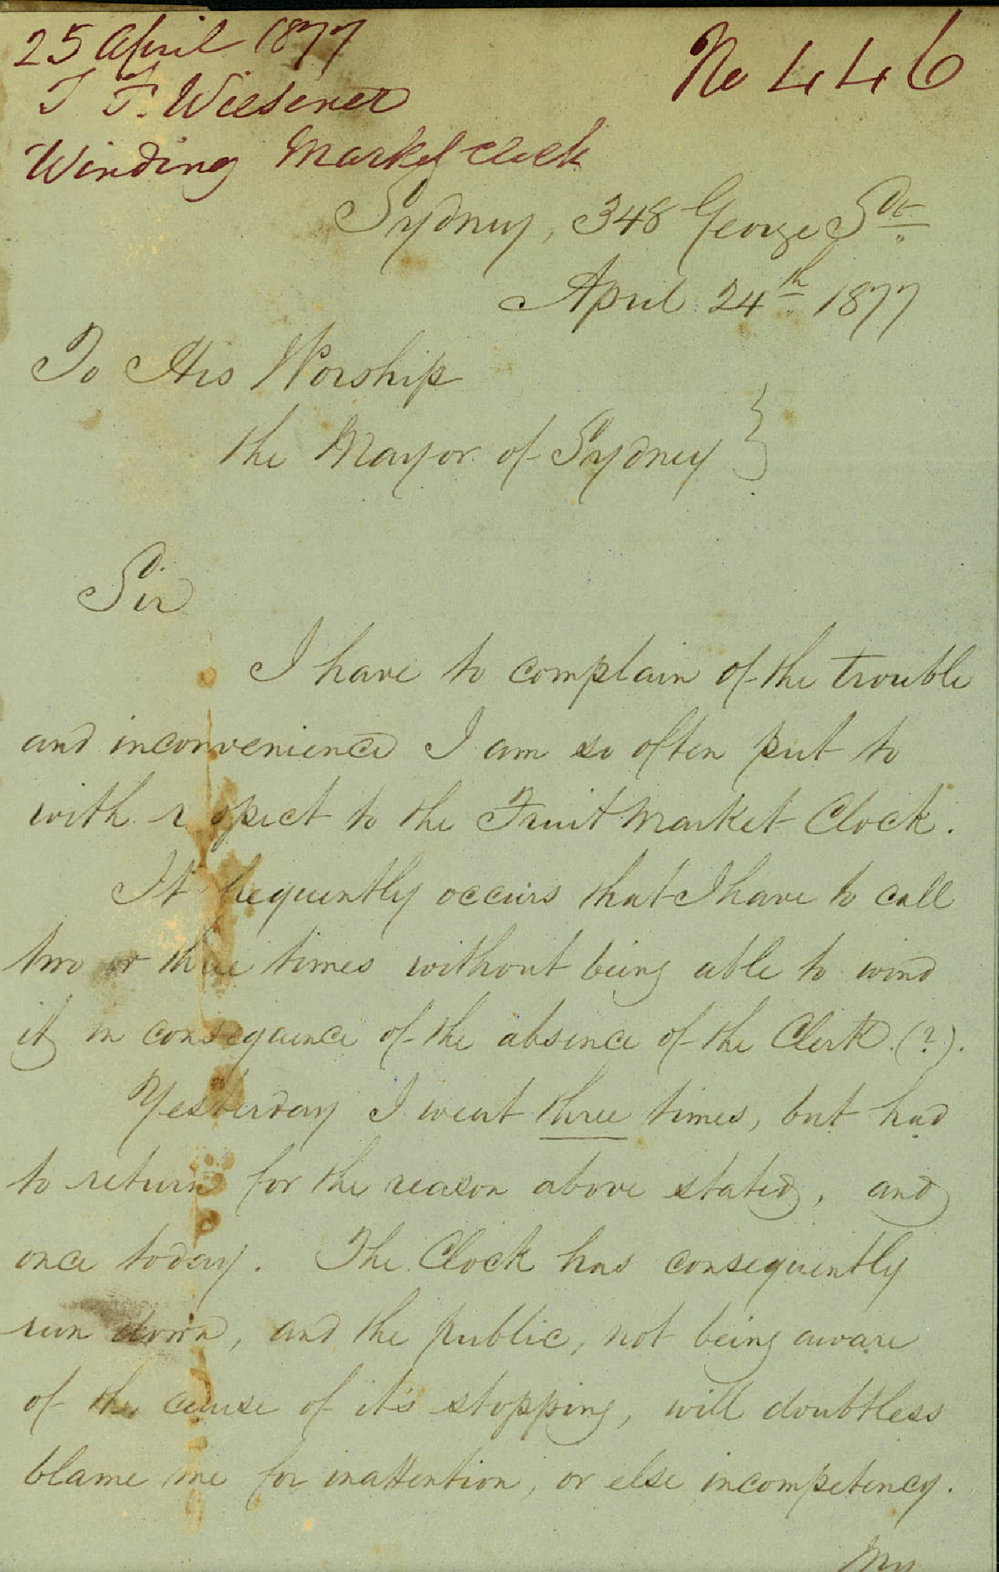 25 April 1877
No 446
T F. Wiesener
Winding Market clock
Sydney, 348 George St.
April 24th. 1877
To His Worship
the Mayor of Sydney }
Sir
I have to complain of the trouble
and inconvenience I am so often put to
with r spect to the Fruit Market Clock.
It frequently occurs that I have to call
two or three times without being able to wind
it in consequence of the absence of the Clerk (?).
Yesterday I went three times, but had
to return for the reason above stated, and
once today. The Clock has consequently
run down, and the public, not being aware
of the cause of it's stopping, will doubtless
blame me for inattention, or else incompetency.
My